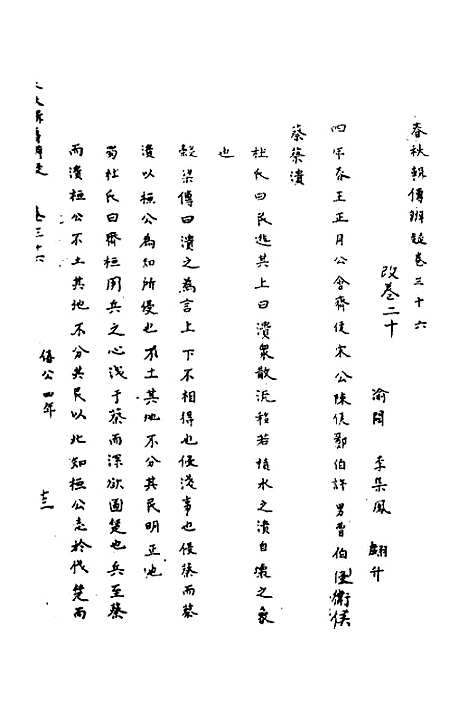 春秋輯傳辨疑卷三十六
改卷二十
渝關 李集鳳 翽升
四年春王正月公會齊侯宋公陳侯鄭伯許男曹伯侵衛侯
蔡蔡潰
杜氏曰民逃其上曰潰衆散流移若積水之潰自壞之象
也
穀梁傳曰潰之為言上下不相得也侵淺事也侵蔡而蔡
潰以桓公為知所侵也不土其地不分其民明正也
胡杜氏曰齊桓用兵之心淺于蔡而深欲圖楚也兵至蔡
而潰桓公不土其地不分其民以此知桓公志於伐楚而
春秋輯傳辨疑 卷三十六
僖公四年